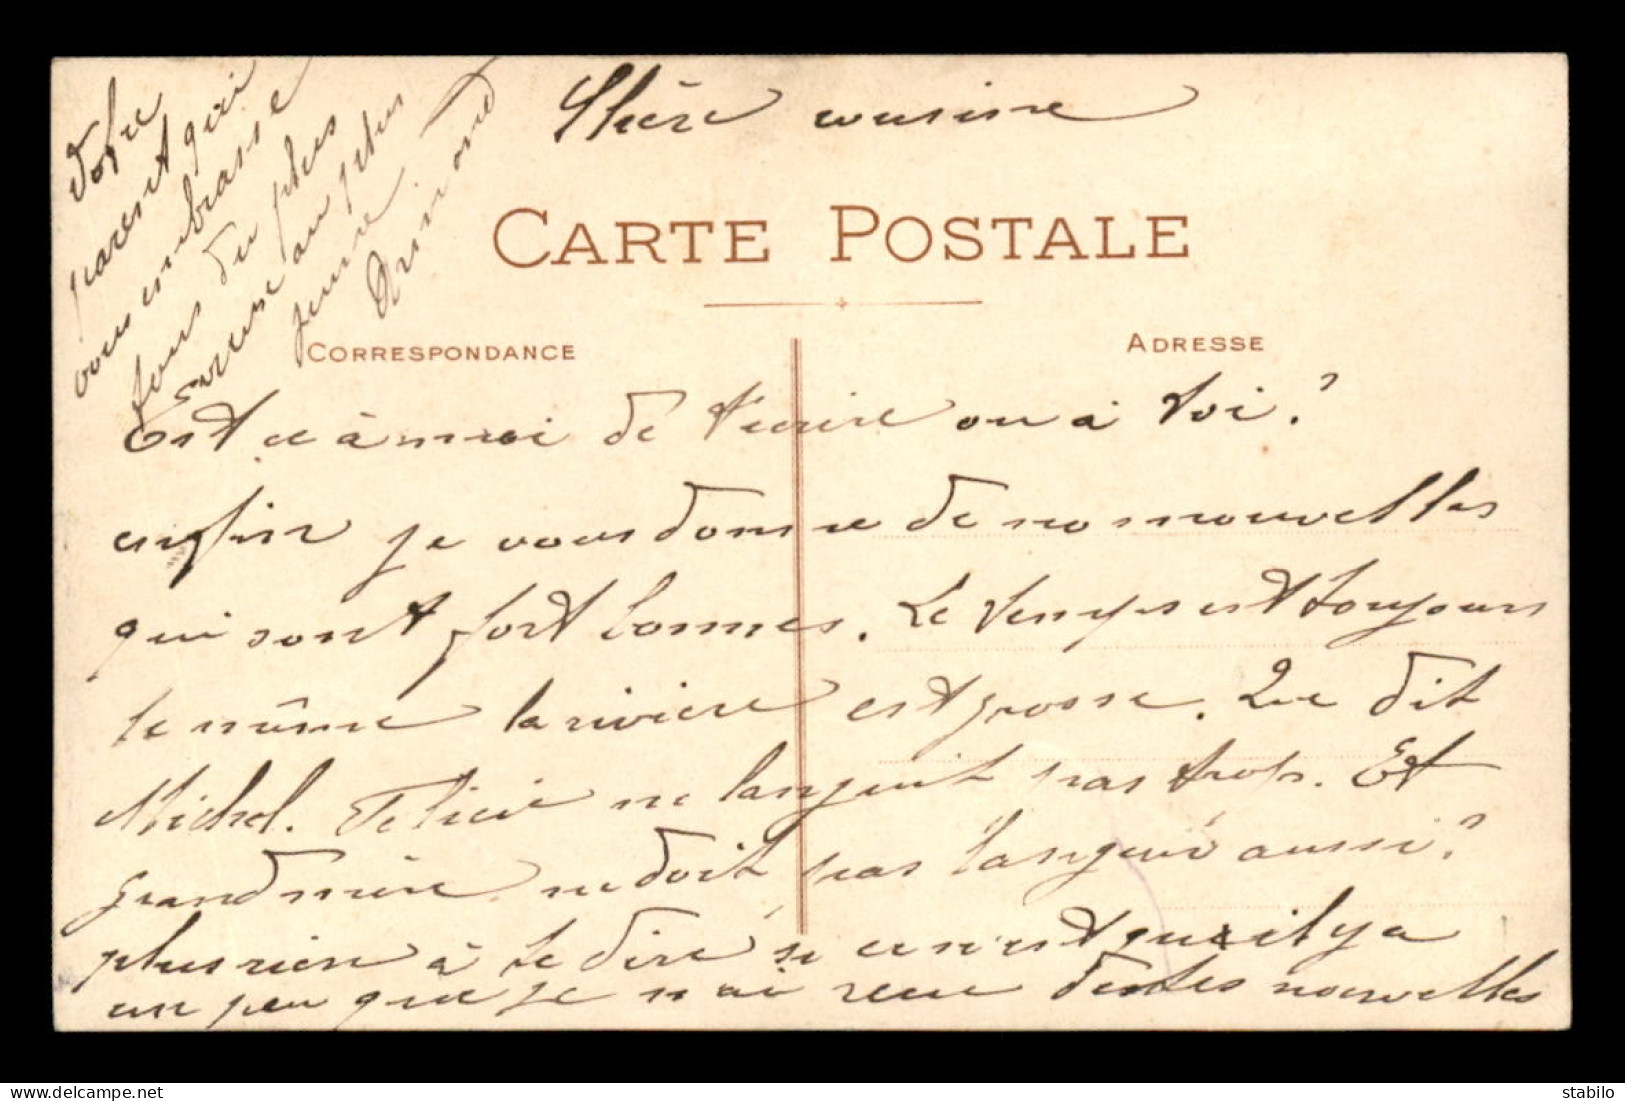 Chère cousine
CARTE POSTALE
CORRESPONDANCE
ADRESSE
Est ce à moi de t'ecrire ou à toi ?
enfin je vous donne de nos nouvelles
qui sont fort bonnes. Le temps est toujours
le même la riviere est grosse. Que dit
Michel. Felicie ne languit pas trop. Et
grand mère ne doit pas languir aussi ?
plus rien à te dire si ce n'est qu'il y a
un peu que je n'ai reçu de tes nouvelles
Votre
parent qui
vous embrasse
tous du plus
au plus
jeune
Armand
stabilo